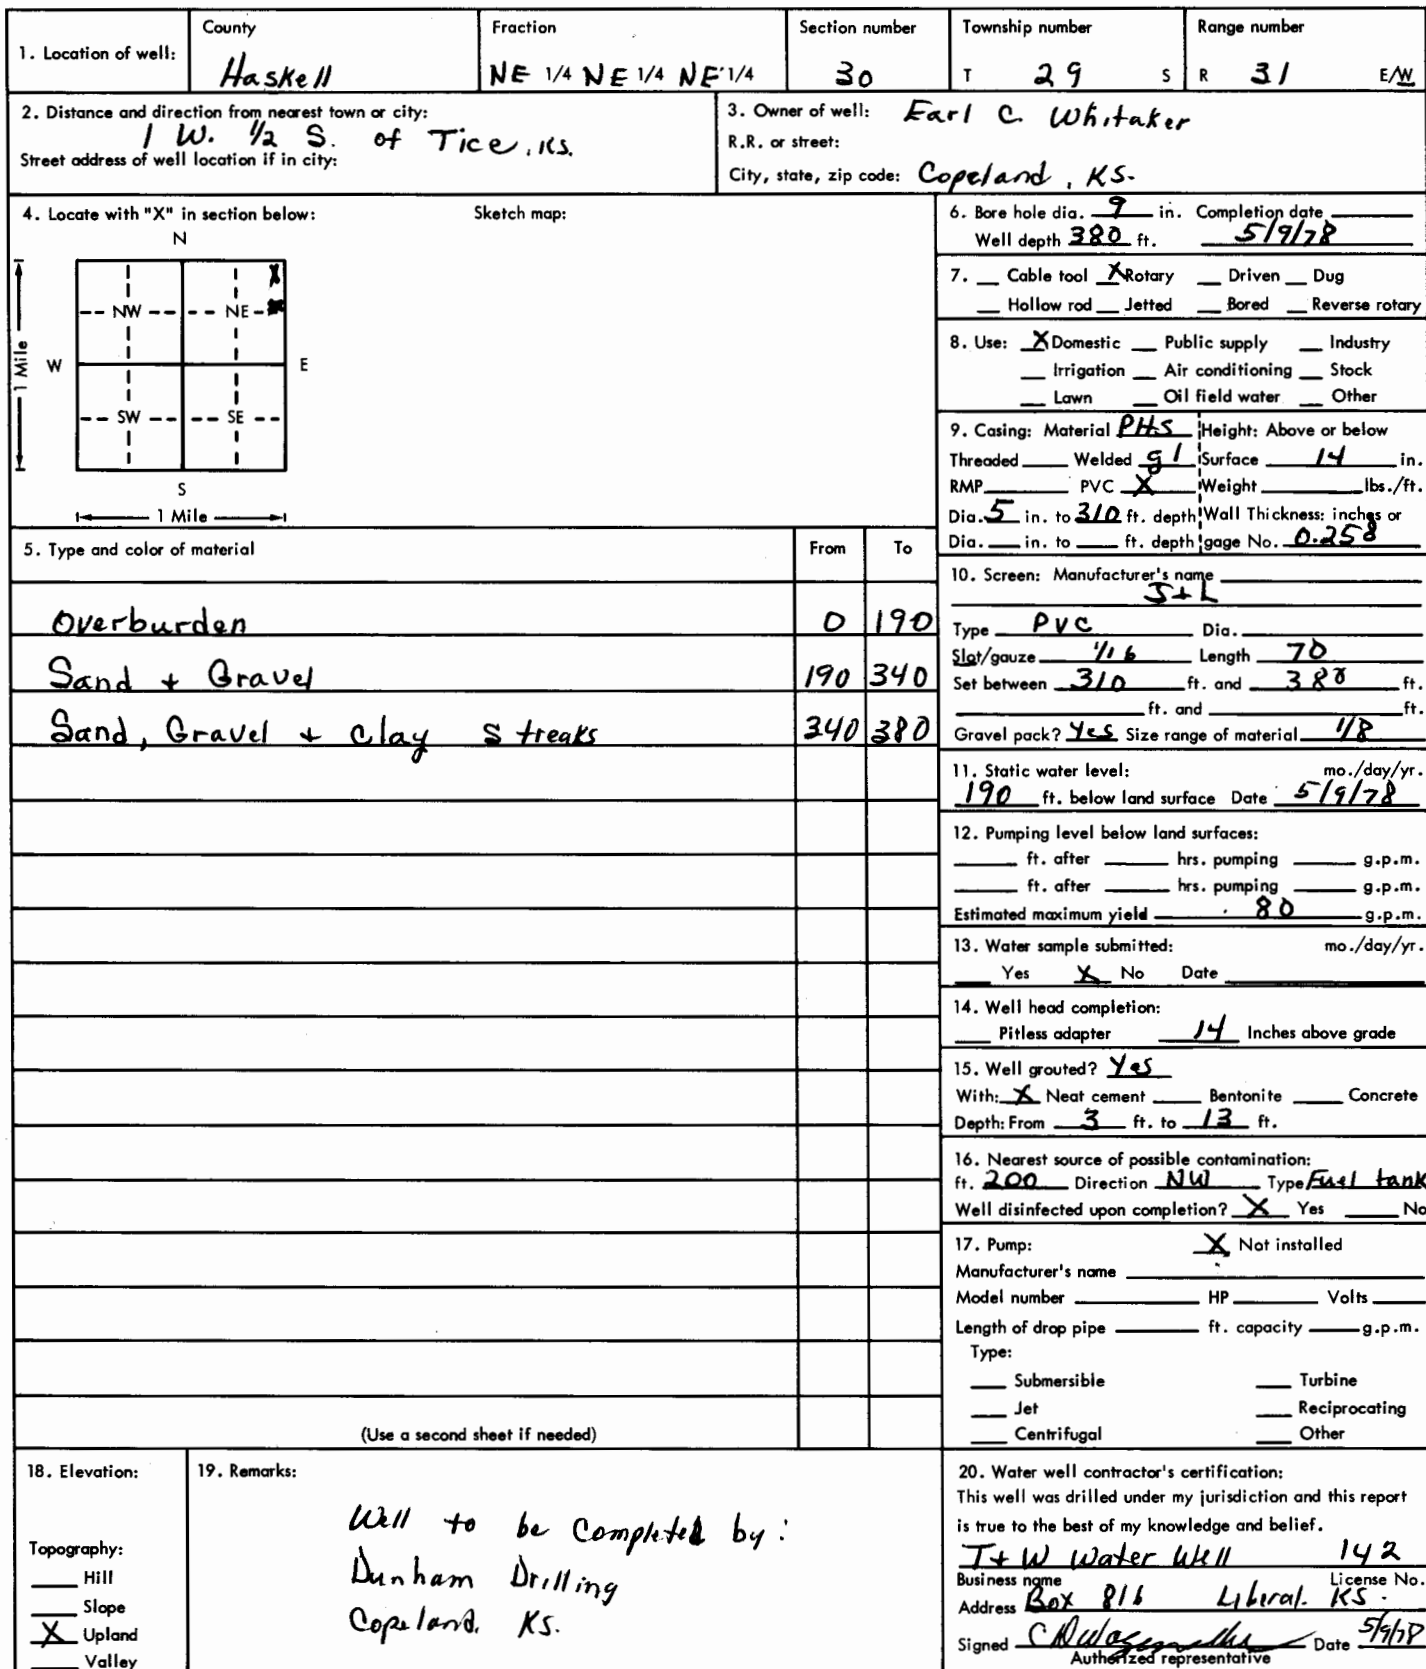 1. Location of well:
County
Haskell
Fraction
NE 1/4 NE 1/4 NE 1/4
Section number
30
Township number
T 29 S
Range number
R 31 E/W
2. Distance and direction from nearest town or city:
1 W. 1/2 S. of Tice, KS.
Street address of well location if in city:
3. Owner of well: Earl C. Whitaker
R.R. or street:
City, state, zip code: Copeland, KS.
4. Locate with "X" in section below:
Sketch map:
N
X
NW NE
W E
SW SE
S
1 Mile
1 Mile
5. Type and color of material From To
Overburden 0 190
Sand + Gravel 190 340
Sand, Gravel + Clay Streaks 340 380
(Use a second sheet if needed)
6. Bore hole dia. 9 in. Completion date
Well depth 380 ft. 5/9/78
7. __ Cable tool X Rotary __ Driven __ Dug
__ Hollow rod __ Jetted __ Bored __ Reverse rotary
8. Use: X Domestic __ Public supply __ Industry
__ Irrigation __ Air conditioning __ Stock
__ Lawn __ Oil field water __ Other
9. Casing: Material PHS Height: Above or below
Threaded ____ Welded gl Surface 14 in.
RMP ____ PVC X Weight ____ lbs./ft.
Dia. 5 in. to 310 ft. depth Wall Thickness: inches or
Dia. __ in. to __ ft. depth gage No. 0.258
10. Screen: Manufacturer's name
J+L
Type PVC Dia.
Slot/gauze 1/16 Length 70
Set between 310 ft. and 380 ft.
____ ft. and ____ ft.
Gravel pack? Yes Size range of material 1/8
11. Static water level: mo./day/yr.
190 ft. below land surface Date 5/9/78
12. Pumping level below land surfaces:
____ ft. after ____ hrs. pumping ____ g.p.m.
____ ft. after ____ hrs. pumping ____ g.p.m.
Estimated maximum yield 80 g.p.m.
13. Water sample submitted: mo./day/yr.
__ Yes X No Date
14. Well head completion:
__ Pitless adapter 14 Inches above grade
15. Well grouted? Yes
With: X Neat cement __ Bentonite __ Concrete
Depth: From 3 ft. to 13 ft.
16. Nearest source of possible contamination:
ft. 200 Direction NW Type Fuel tank
Well disinfected upon completion? X Yes __ No
17. Pump: X Not installed
Manufacturer's name
Model number ____ HP ____ Volts ____
Length of drop pipe ____ ft. capacity ____ g.p.m.
Type:
__ Submersible __ Turbine
__ Jet __ Reciprocating
__ Centrifugal __ Other
18. Elevation:
Topography:
__ Hill
__ Slope
X Upland
__ Valley
19. Remarks:
Well to be completed by:
Dunham Drilling
Copeland, KS.
20. Water well contractor's certification:
This well was drilled under my jurisdiction and this report
is true to the best of my knowledge and belief.
T+W Water Well 142
Business name License No.
Address Box 816 Liberal, KS.
Signed Date 5/9/78
Authorized representative